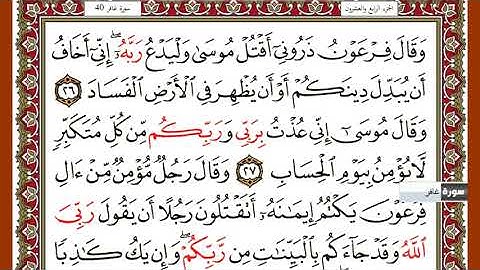 الجزء الرابع والعشرون
سورة غافر 40
وَقَالَ فِرْعَوْنُ ذَرُونِىٓ أَقْتُلْ مُوسَىٰ وَلْيَدْعُ رَبَّهُۥٓ ۖ إِنِّىٓ أَخَافُ
أَن يُبَدِّلَ دِينَكُمْ أَوْ أَن يُظْهِرَ فِى ٱلْأَرْضِ ٱلْفَسَادَ ٢٦
وَقَالَ مُوسَىٰٓ إِنِّى عُذْتُ بِرَبِّى وَرَبِّكُم مِّن كُلِّ مُتَكَبِّرٍ
لَّا يُؤْمِنُ بِيَوْمِ ٱلْحِسَابِ ٢٧ وَقَالَ رَجُلٌ مُّؤْمِنٌ مِّنْ ءَالِ
سورة غافر
فِرْعَوْنَ يَكْتُمُ إِيمَـٰنَهُۥٓ أَتَقْتُلُونَ رَجُلًا أَن يَقُولَ رَبِّىَ
ٱللَّهُ وَقَدْ جَآءَكُم بِٱلْبَيِّنَـٰتِ مِن رَّبِّكُمْ ۖ وَإِن يَكُ كَـٰذِبًا